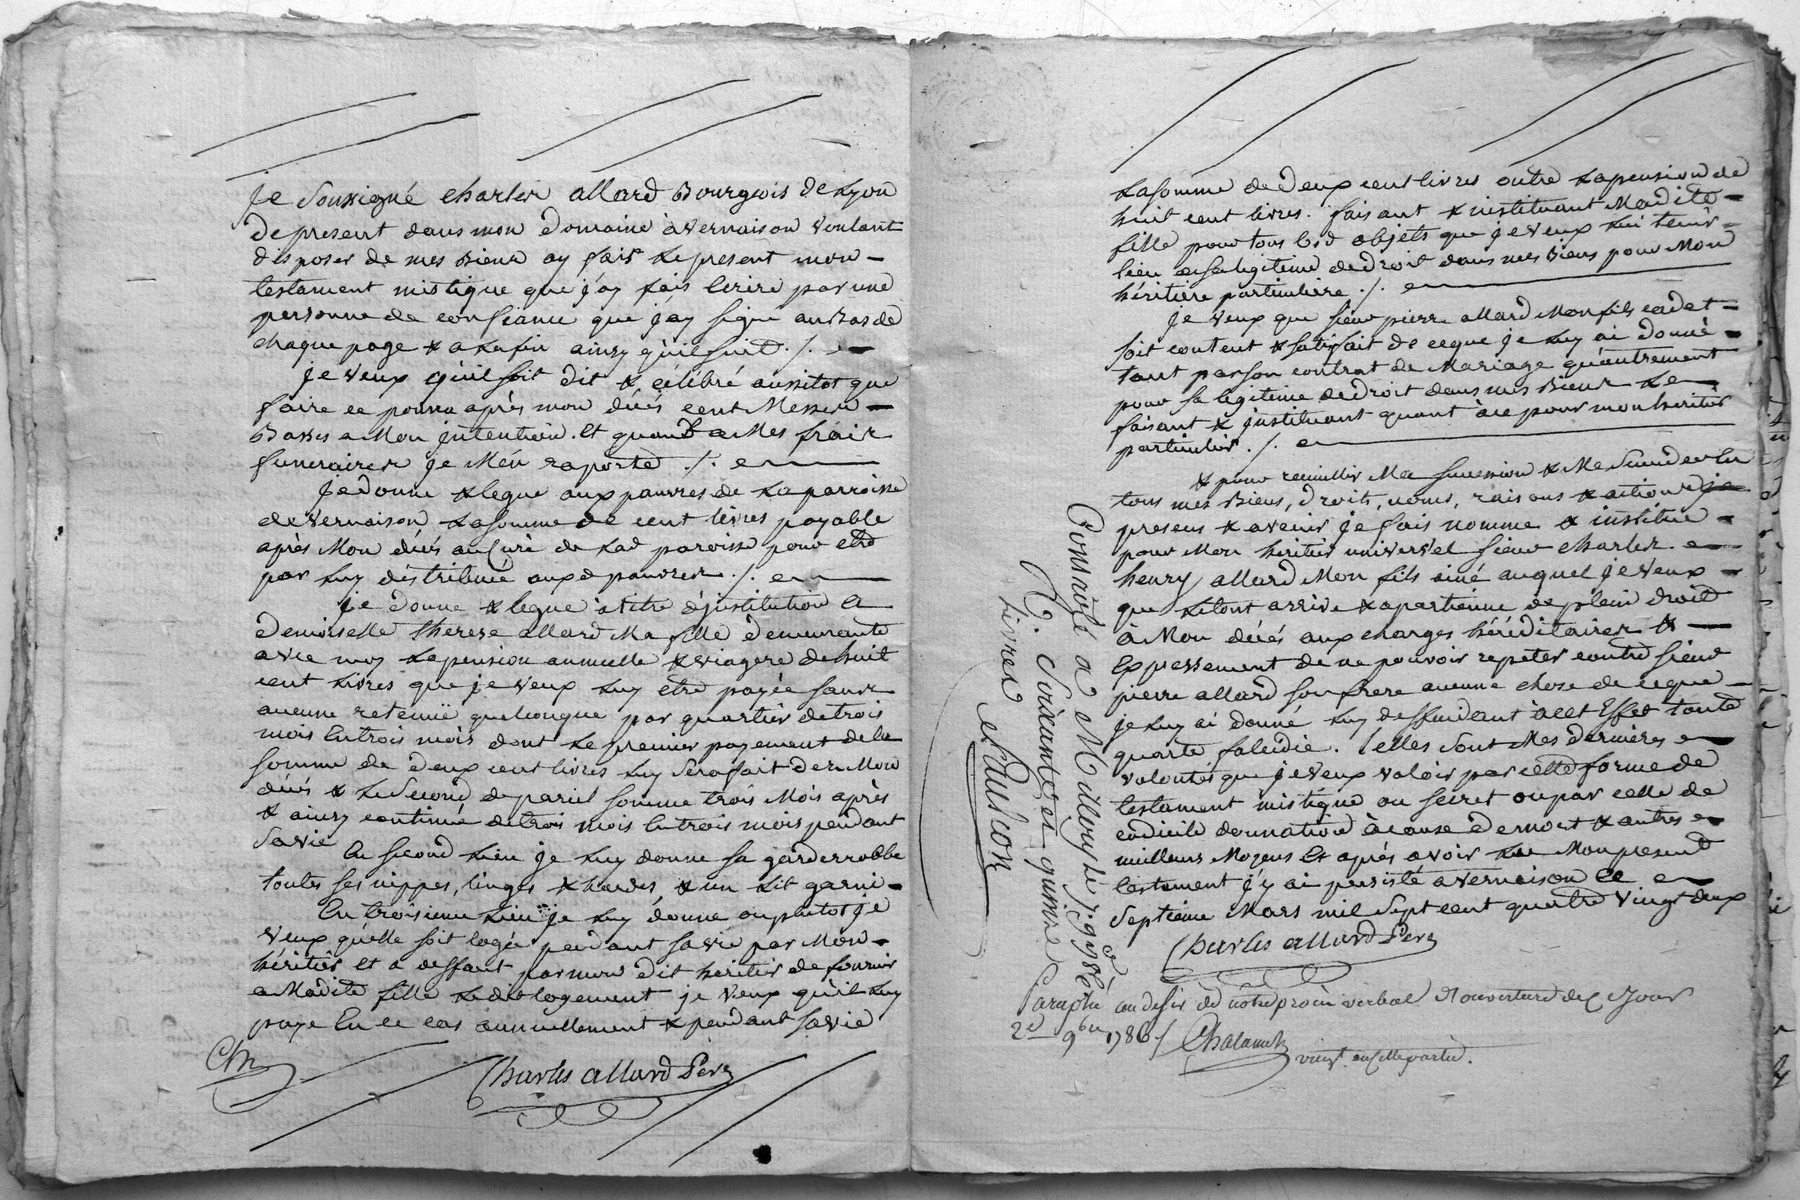 Je Soussigné charles allard Bourgeois de Lyon
de present dans mon domaine à vernaison voulant
disposer de mes Biens ay fait Le present mon
testament mistique que j'ay fais Ecrire par une
personne de confiance que j'ay signé au Bas de
chaque page & a La fin ainsy qu'il suit ./.
Je veux qu'il soit dit & célébré aussitot que
faire ce pourra après mon décés cent Messes
Basses a Mon jntention. Et quand a Mes frais
funeraires je M'en raporte ./.
Je donne & legue aux pauvres de La parroisse
de vernaison La somme de cent livres payable
après Mon décés au Curé de Lad paroisse pour etre
par Luy distribuée auxd pauvres ./.
Je donne & legue à titre d'jnstitution a
demoiselle therese allard Ma fille demeurante
avec moy La pension annuelle & viagere de huit
cent Livres que je veux Luy etre payée sans
aucune retenuë quelconque par quartier de trois
mois En trois mois dont Le premier payement de la
somme de deux cent livres Luy sera fait des Mon
décés & Le Second de pareil somme trois Mois après
& ainsy continué de trois mois En trois mois pendant
Sa vie
En second Lieu je Luy donne sa garderrobbe
toutes ses nippes, linges & hardes, & un Lit garni
En troisieme Lieu je Luy donne ou plutot je
veux qu'elle soit logée pendant sa vie par Mon
héritier Et a deffaut par mon dit heritier de fournir
a Madite fille Ledit logement je veux qu'il Luy
paye En ce cas annuellement & pendant sa vie
Charles allard Pere
La somme de deux cent livres outre La pension de
huit cent livres. faisant & instituant Madite
fille pour tous Lesd objets que je veux Lui tenir
lieu de sa legitime de droit dans mes Biens pour Mon
héritière particuliere ./.
Je veux que sieur pierre allard Mon fils cadet
soit content & satisfait de ce que je Luy ai donné
tant par son contrat de Mariage qu'autrement
pour sa legitime de droit dans mes Biens Le
faisant & jnstituant quant à ce pour mon heritier
particulier ./.
& pour recuillir Ma succession & Me Succeder En
tous mes Biens, droits, noms, raisons & actions
presens & avenir je fais nomme & institue
pour Mon heritier universel sieur charles
henry allard Mon fils ainé auquel je veux
que Le tout arrive & apartienne de plein droit
à Mon décés aux charges héréditaires &
Expressement de ne pouvoir repeter contre sieur
pierre allard son frere aucune chose de ce que
je Luy ai donné Luy deffendant à cet Effet toute
quarte falcidie. telles sont Mes dernières
volontés que je veux valoir par cette forme de
testament mistique ou secret ou par celle de
codicile donnation à cause de mort & autres
meilleurs Moyens Et après avoir Lue Mon present
testament j'y ai persisté a vernaison Ce
Septième Mars mil Sept cent quatre vingt deux
Charles allard Pere
Paraphé au desir de nôtre procès verbal d'ouverture de ce Jour
2e 9bre 1786 /
Controlé a Millery le
R. soixante et quinze
Livres